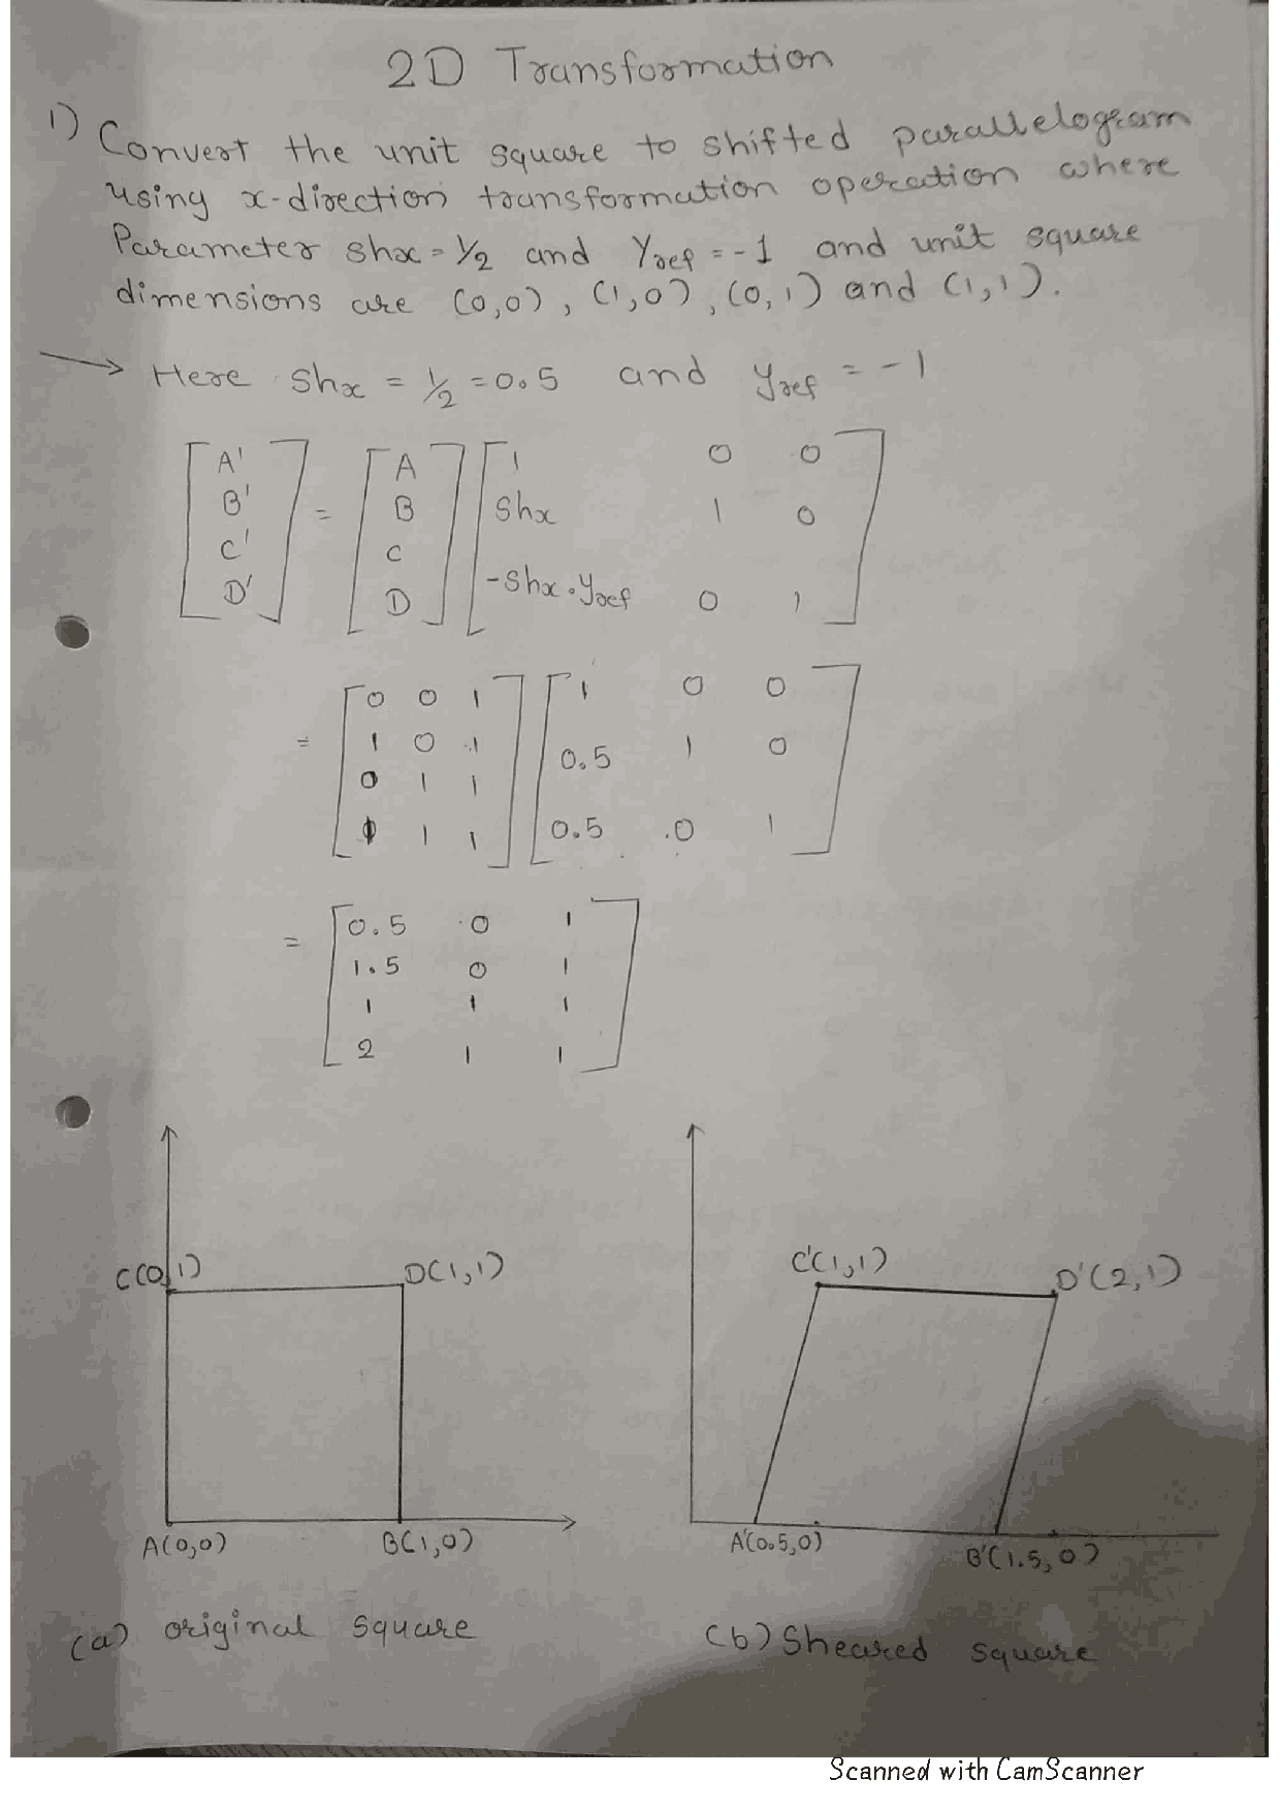 2D Transformation
1) Convert the unit square to shifted parallelogram
using x-direction transformation operation where
Parameter shx = 1/2 and Yref = -1 and unit square
dimensions are (0,0), (1,0), (0,1) and (1,1).
→ Here shx = 1/2 = 0.5 and yref = -1
[A' [A [1 0 0]
B' = B shx 1 0
C' C
D'] D] -shx.yref 0 1]
= [0 0 1] [1 0 0]
1 0 1 0.5 1 0
0 1 1
1 1 1 0.5 0 1
= [0.5 0 1]
1.5 0 1
1 1 1
2 1 1
C(0,1) D(1,1) C'(1,1) D'(2,1)
A(0,0) B(1,0) A'(0.5,0) B'(1.5,0)
(a) original square (b) Sheared square
Scanned with CamScanner